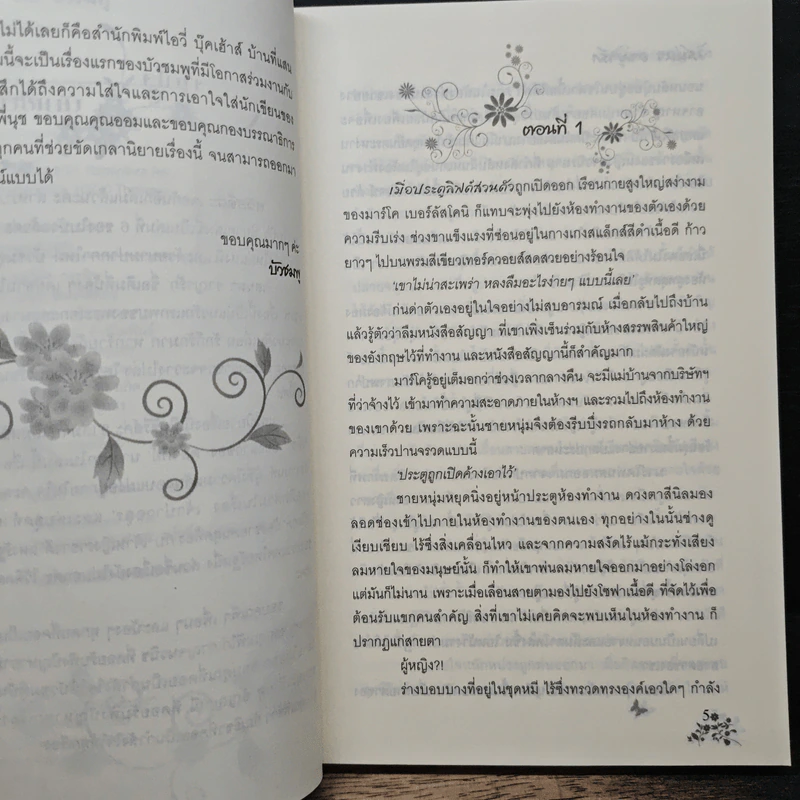 ไม่ได้เลยก็คือสำนักพิมพ์ไอวี่ บุ๊คเฮ้าส์ บ้านที่แสน
นี้จะเป็นเรื่องแรกของบัวชมพูที่มีโอกาสร่วมงานกับ
สึกได้ถึงความใส่ใจและการเอาใจใส่นักเขียนของ
พี่นุช ขอบคุณคุณออมและขอบคุณกองบรรณาธิการ
ทุกคนที่ช่วยขัดเกลานิยายเรื่องนี้ จนสามารถออกมา
แบบได้
ขอบคุณมากๆ ค่ะ
บัวชมพู
ตอนที่ 1
เมื่อประตูลิฟต์ส่วนตัวถูกเปิดออก เรือนกายสูงใหญ่สง่างาม
ของมาร์โค เบอร์ลัสโคนี ก็แทบจะพุ่งไปยังห้องทำงานของตัวเองด้วย
ความรีบเร่ง ช่วงขาแข็งแรงที่ซ่อนอยู่ในกางเกงสแล็กส์สีดำเนื้อดี ก้าว
ยาวๆ ไปบนพรมสีเขียวเทอร์ควอยส์สดสวยอย่างร้อนใจ
'เขาไม่น่าสะเพร่า หลงลืมอะไรง่ายๆ แบบนี้เลย'
ก่นด่าตัวเองอยู่ในใจอย่างไม่สบอารมณ์ เมื่อกลับไปถึงบ้าน
แล้วรู้ตัวว่าลืมหนังสือสัญญา ที่เขาเพิ่งเซ็นร่วมกับห้างสรรพสินค้าใหญ่
ของอังกฤษไว้ที่ทำงาน และหนังสือสัญญานี้ก็สำคัญมาก
มาร์โครู้อยู่เต็มอกว่าช่วงเวลากลางคืน จะมีแม่บ้านจากบริษัทฯ
ที่ว่าจ้างไว้ เข้ามาทำความสะอาดภายในห้างฯ และรวมไปถึงห้องทำงาน
ของเขาด้วย เพราะฉะนั้นชายหนุ่มจึงต้องรีบบึ่งรถกลับมาห้าง ด้วย
ความเร็วปานจรวดแบบนี้
'ประตูถูกเปิดค้างเอาไว้'
ชายหนุ่มหยุดนิ่งอยู่หน้าประตูห้องทำงาน ดวงตาสีนิลมอง
ลอดช่องเข้าไปภายในห้องทำงานของตนเอง ทุกอย่างในนั้นช่างดู
เงียบเชียบ ไร้ซึ่งสิ่งเคลื่อนไหว และจากความสงัดไร้แม้กระทั่งเสียง
ลมหายใจของมนุษย์นั้น ก็ทำให้เขาพ่นลมหายใจออกมาอย่างโล่งอก
แต่มันก็ไม่นาน เพราะเมื่อเลื่อนสายตามองไปยังโซฟาเนื้อดี ที่จัดไว้เพื่อ
ต้อนรับแขกคนสำคัญ สิ่งที่เขาไม่เคยคิดจะพบเห็นในห้องทำงาน ก็
ปรากฏแก่สายตา
ผู้หญิง?!
ร่างบอบบางที่อยู่ในชุดหมี ไร้ซึ่งทรวดทรงองค์เอวใดๆ กำลัง
5